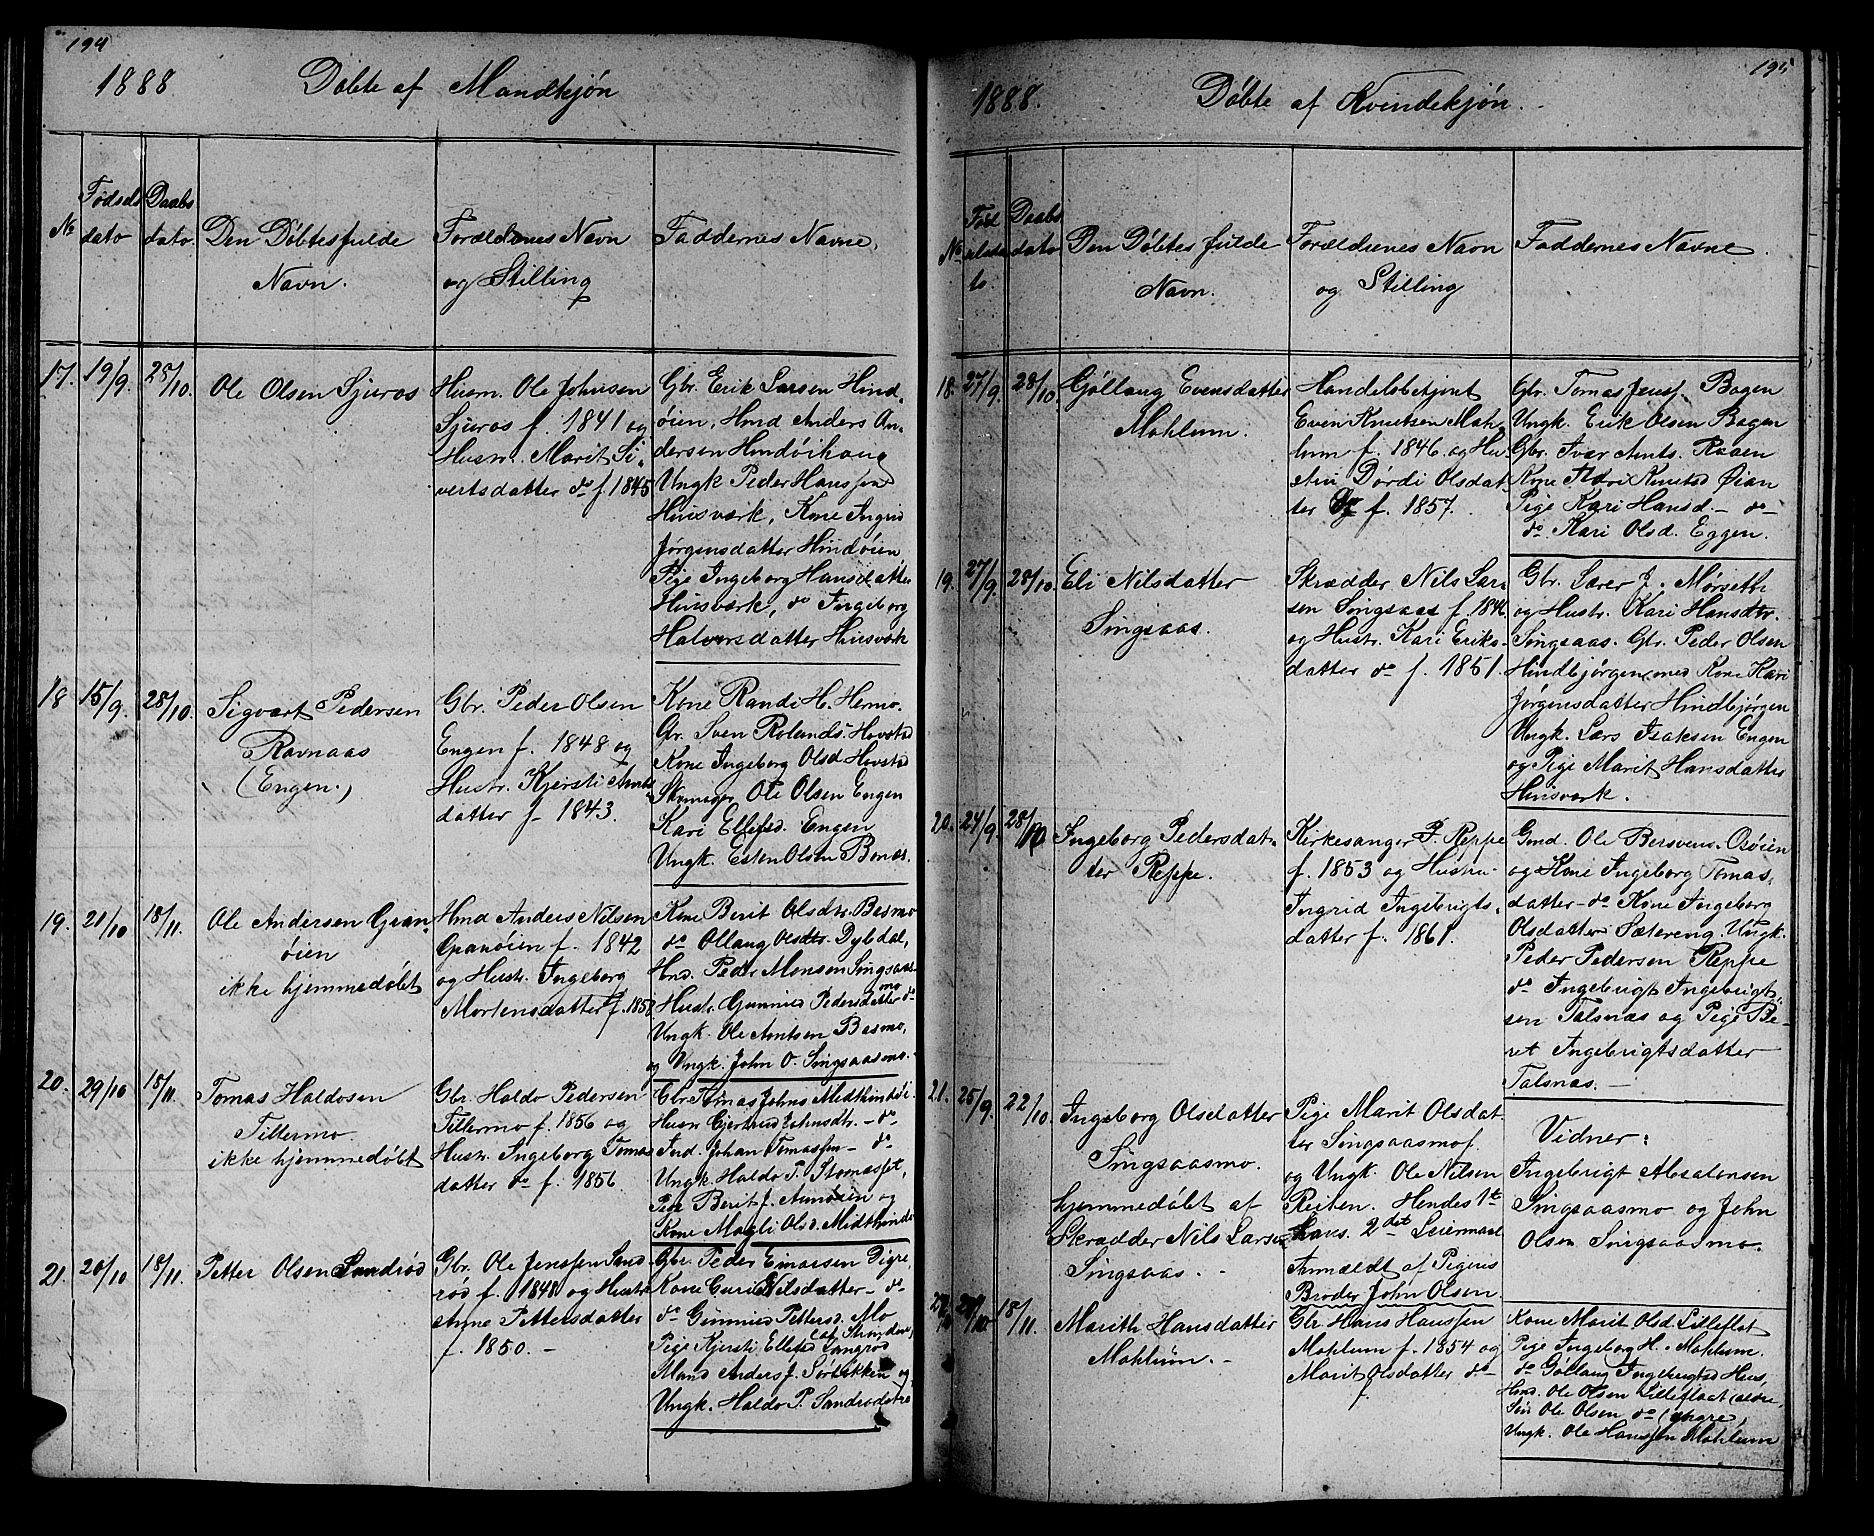 194
1888 Döbte af Mandkjön
No
Födsels
dato
Daabs
dato.
Den Döbtes fulde
Navn.
Forældrenes Navn
og Stilling
Faddernes Navne.
17. 19/9. 28/10.
Ole Olsen Sjuros
Husm. Ole Johnsen
Sjuros f. 1841 og
Hustr. Marit Si-
vertsdatter do f. 1845
Gbr. Erik Larsen Hind-
öien, Hmd Anders An-
dersen Hindöihaug
Ungk Peder Hanssen
Huusværk, Kone Ingrid
Jörgensdatter Hindöien
Pige Ingeborg Hansdatter
Huusværk, do Ingeborg
Halvorsdatter Huusværk
18 15/9. 28/10.
Sigvart Pedersen
Ravnaas
(Engen.)
Gbr. Peder Olsen
Engen f. 1848 og
Hustr. Kjersti Arnts-
datter f. 1843.
Kone Randi H. Hemo.
Gbr. Sven Rolands. Hovstad
Kone Ingeborg Olsd Hovstad
Ole Olsen Engen
Kari Ellefsd. Engen
Ungk. Esten Olsen Bonæs.
19. 21/10 18/11.
Ole Andersen Gran-
öien
ikke hjemmedöbt
Hmd Anders Nilsen
Granöien f. 1842
og Hustr. Ingeborg
Mortensdatter f. 1858
Kone Berit Olsdtr. Bosmo
do Ollaug Olsdtr. Dybdal,
Hmd. Peder Monsen Singsaas-
mo
Hustr. Gunnild Pedersdatter do
Ungk. Ole Arntsen Bosmo,
og Ungk. John O. Singsaasmo.
20. 29/10 18/11.
Tomas Haldosen
Tillermo.
ikke hjemmedöbt
Gbr. Haldo Pedersen
Tillermo f. 1856 og
Hustr. Ingeborg Tomas
datter do f. 1856
Gbr. Tomas Johns Midthindöi.
Hustr Gjertrud Johnsdtr. - do
Ind. Johan Tomassen - do
Ungk. Haldo P. Stomasset,
Pige Berit J. Aunöien og
Kone Magli Olsd. Midthindö
21. 26/10 18/11.
Petter Olsen Sandröd
Gbr. Ole Jenssen Sand
röd f. 1848 og Hustr
Anne Pettersdatter
f. 1850. -
Gbr. Peder Einarsen Digre
Kone Guri Nilsdatter - do
do Gunnild Pettersd. Mo
Pige Kjersti Ellefsd Langröd
Mand Anders J. Sörbekken og
Ungk. Haldo P. Sandrödstrø
195
1888. Döbte af Kvindekjön.
No
Föd
selsda
to.
Daabs
dato
Den Döbtes fulde
Navn.
Forældrenes Navn
og Stilling
Faddernes Navne
18. 27/9. 28/10.
Gjöllaug Evensdatter
Mohlum.
Handelsbetjent
Even Knutsen Moh-
lum f. 1846. og Hu-
stru Dordi Olsdat-
ter do f. 1857.
Gbr. Tomas Jensf. Bogen
Ungk. Erik Olsen Bogen
Gbr. Ivar Arnts. Roaen
Kone Kari Knutsd Öian
Pige Kari Hansd. - do
do Kari Olsd. Eggen.
19. 27/9. 28/10.
Eli Nilsdatter
Singsaas.
Skrædder Nils Lar-
sen Singsaas f. 1846
og Hustr. Kari Eriks-
datter do f. 1851.
Gbr. Lærer J. Mörseth
og Hustr. Kari Hansdtr.
Singsaas. Gbr. Peder Olsen
Hindbjörgen, med Kone Kari
Jörgensdatter Hindbjörgen
Ungk. Lars Isaksen Engen
og Pige Marit Hansdatter
Huusværk.
20. 24/9. 28/10
Ingeborg Pedersdat-
ter Reppe.
Kirkesanger P. Reppe
f. 1853 og Hustru
Ingrid Ingebrigts-
datter f. 1861.
Gmd. Ole Bersvens. Osöien
og Kone Ingeborg Tomas-
datter - do Kone Ingeborg
Olsdatter Sætereng. Ungk.
Peder Pedersen Reppe
do Ingebrigt Ingebrigt-
sen Talsnæs og Pige Be-
ret Ingebrigtsdatter
Talsnæs. -
21. 25/9. 22/10
Ingeborg Olsdatter
Singsaasmo.
hjemmedöbt af
Skrædder Nils Larsen
Singsaas. -
Pige Marit Olsdat
ter Singsaasmo f.
og Ungk. Ole Nilsen
Reiten. Hendes 1te
hans 2det Leiermaal
Anmeldt af Pigens
Broder John Olsen.
Vidner:
Ingebrigt Absalonsen
Singsaasmo og John
Olsen Singsaasmo.
22. 28/10 18/11.
Marith Hansdatter
Mohlum. -
Gbr. Hans Hanssen
Mohlum f. 1854 og
Marit Olsdatter do
f.
Kone Marit Olsd. Lilleflot
Pige Ingeborg H. Mohlum.
do Göllaug Ingebrigtsd Huus,
Hmd. Ole Olsen Lilleflaat (ældre,
Sön Ole Olsen do (yngre)
Ungk. Ole Hanssen Mohlum